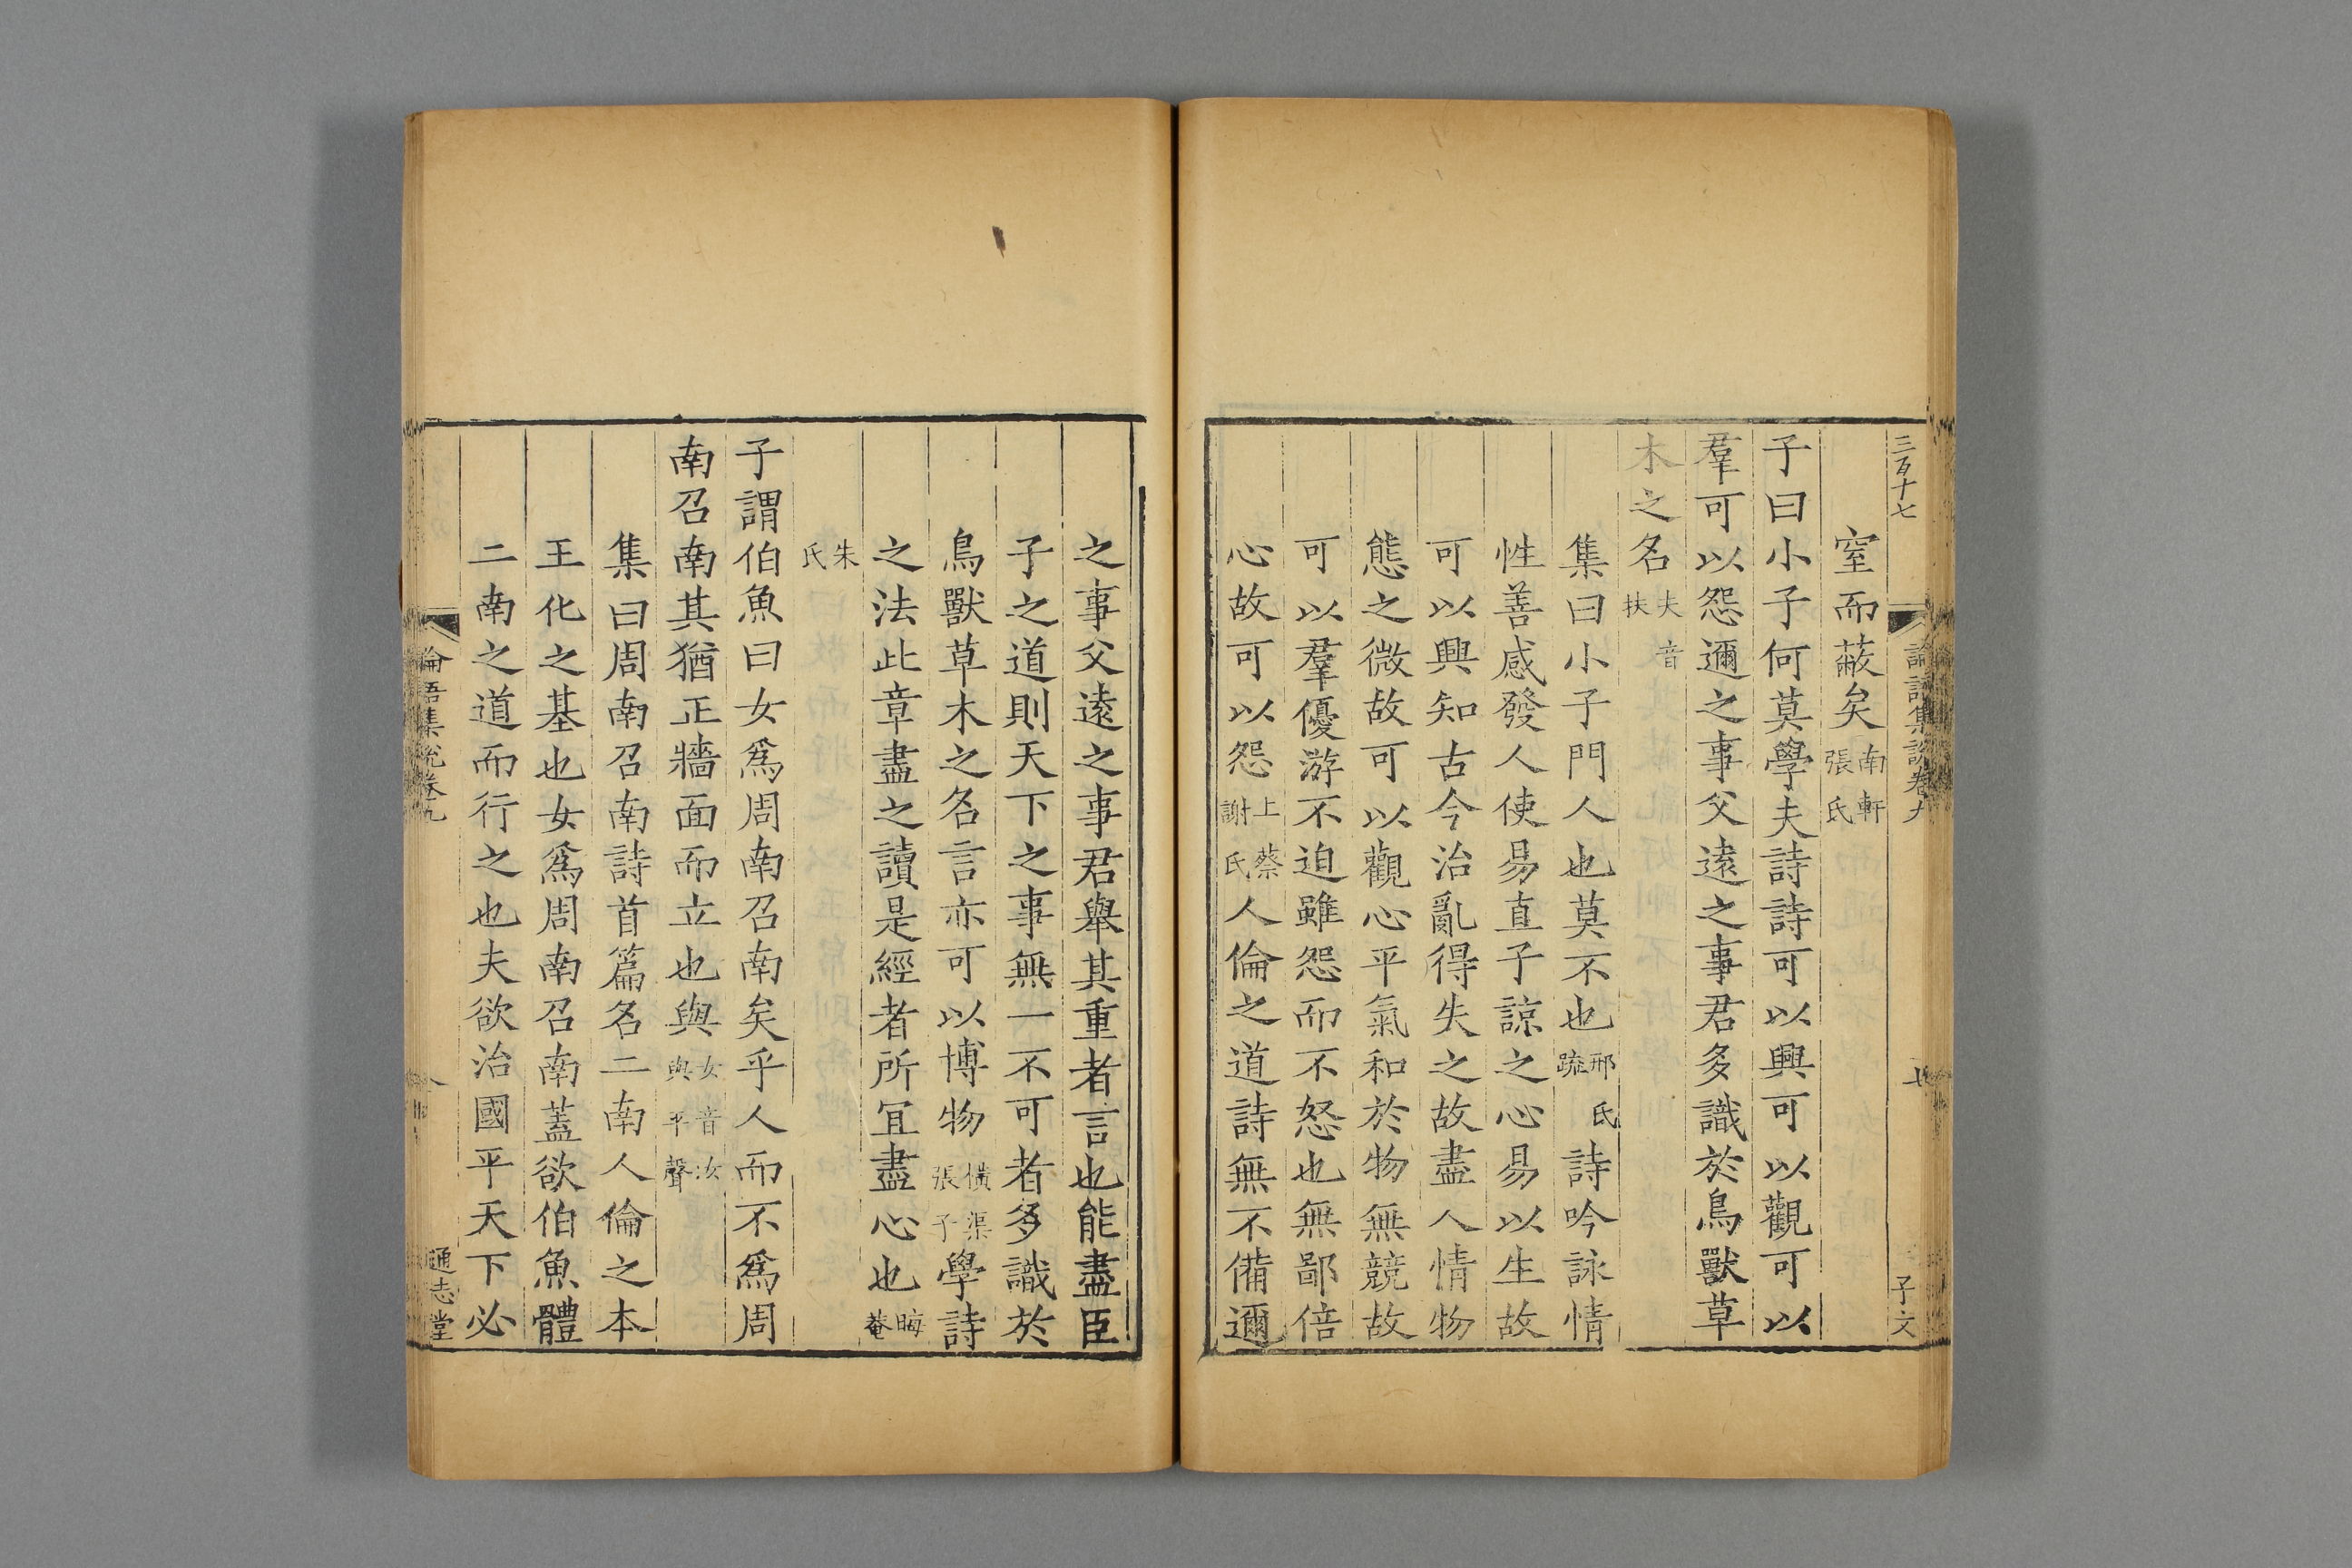 三百十七
論語集說卷九
七
子文
窒而蔽矣南軒張氏
子曰小子何莫學夫詩詩可以興可以觀可以
羣可以怨邇之事父遠之事君多識於鳥獸草
木之名夫音扶
集曰小子門人也莫不也邢氏疏詩吟詠情
性善感發人使易直子諒之心易以生故
可以興知古今治亂得失之故盡人情物
態之微故可以觀心平氣和於物無競故
可以羣優游不迫雖怨而不怒也無鄙倍
心故可以怨上蔡謝氏人倫之道詩無不備邇
之事父遠之事君舉其重者言也能盡臣
子之道則天下之事無一不可者多識於
鳥獸草木之名言亦可以博物橫渠張子學詩
之法此章盡之讀是經者所宜盡心也晦菴
朱氏
子謂伯魚曰女爲周南召南矣乎人而不爲周
南召南其猶正牆面而立也與女音汝與平聲
集曰周南召南詩首篇名二南人倫之本
王化之基也女爲周南召南蓋欲伯魚體
二南之道而行之也夫欲治國平天下必
論語集說卷九
八
通志堂